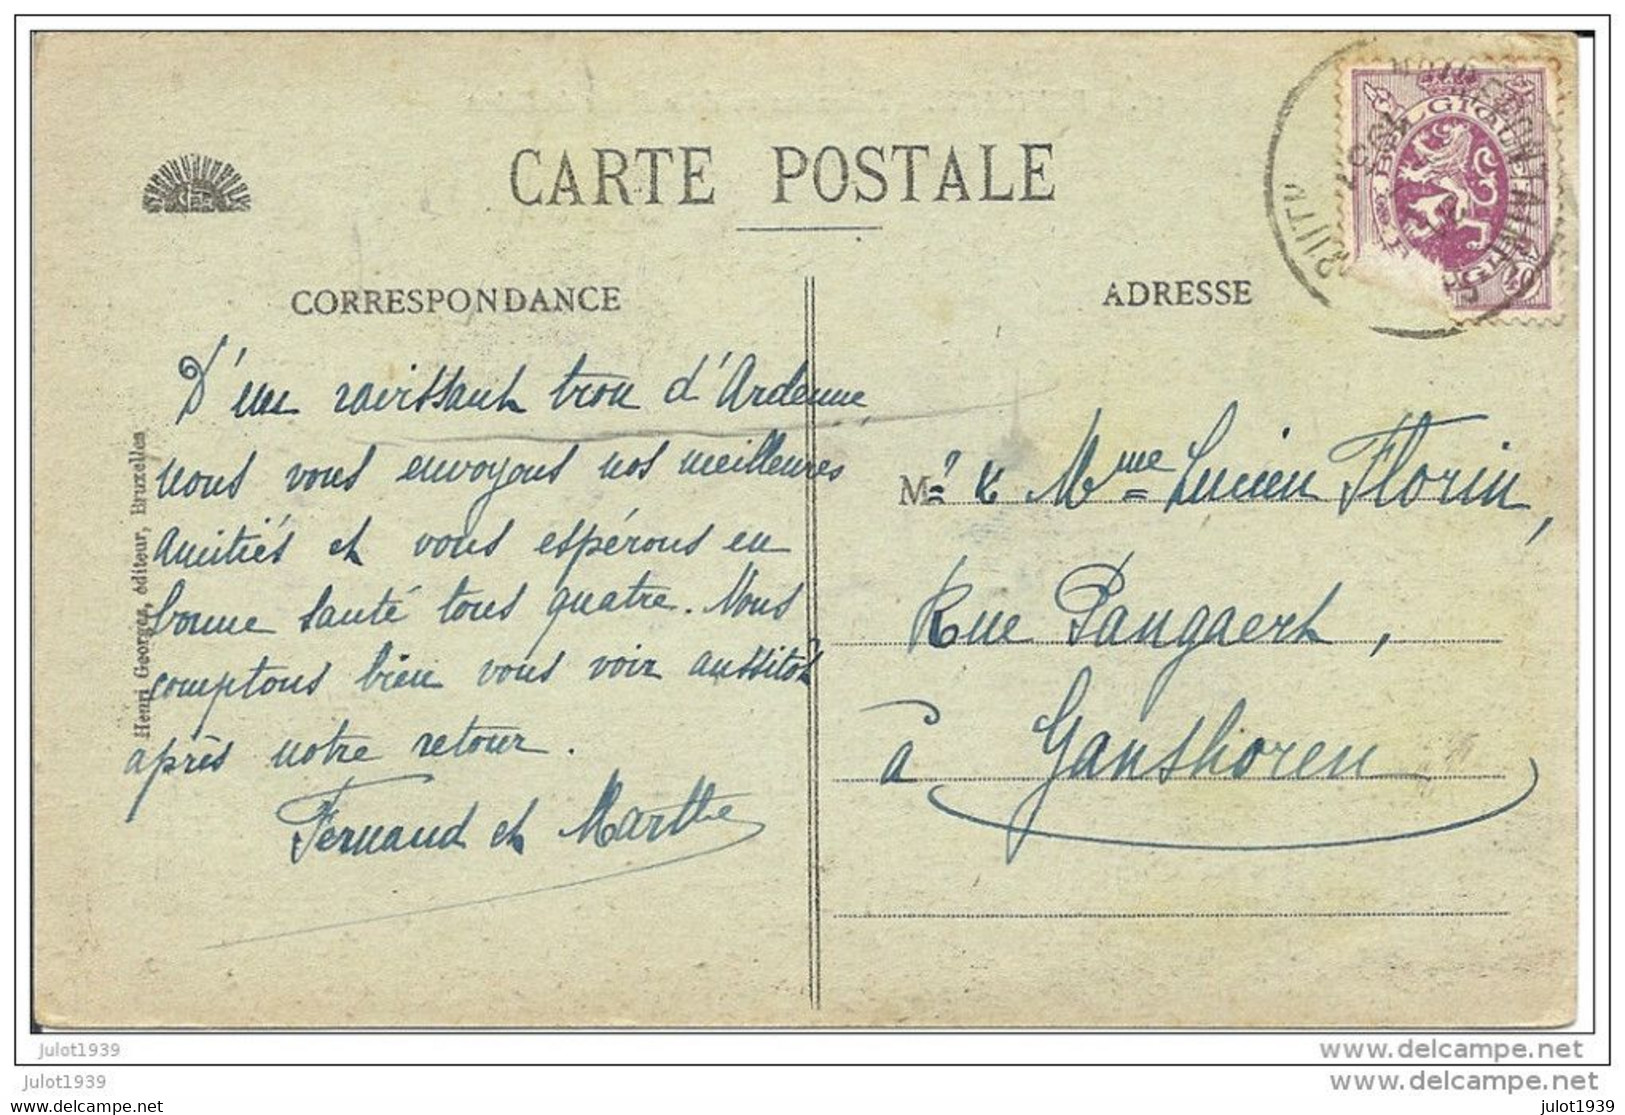 CARTE POSTALE
CORRESPONDANCE
D'un ravissant trou d'Ardenne
nous vous envoyons nos meilleures
amitiés et vous espérons en
bonne santé tous quatre. Nous
comptons bien vous voir aussitôt
après notre retour.
Fernand et Marthe
Henri Georges, éditeur, Bruxelles
ADRESSE
Mr & Mme Lucien Florin,
Rue Pangaert,
à Ganshoren
julot1939
www.delcampe.net
julot1939
www.delcampe.net
julot1939
julot1939